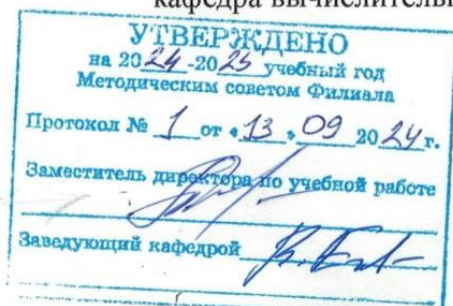 кафедра вычислитель
УТВЕРЖДЕНО
на 2024-2025 учебный год
Методическим советом Филиала
Протокол № 1 от «13» 09 2024г.
Заместитель директора по учебной работе
Заведующий кафедрой